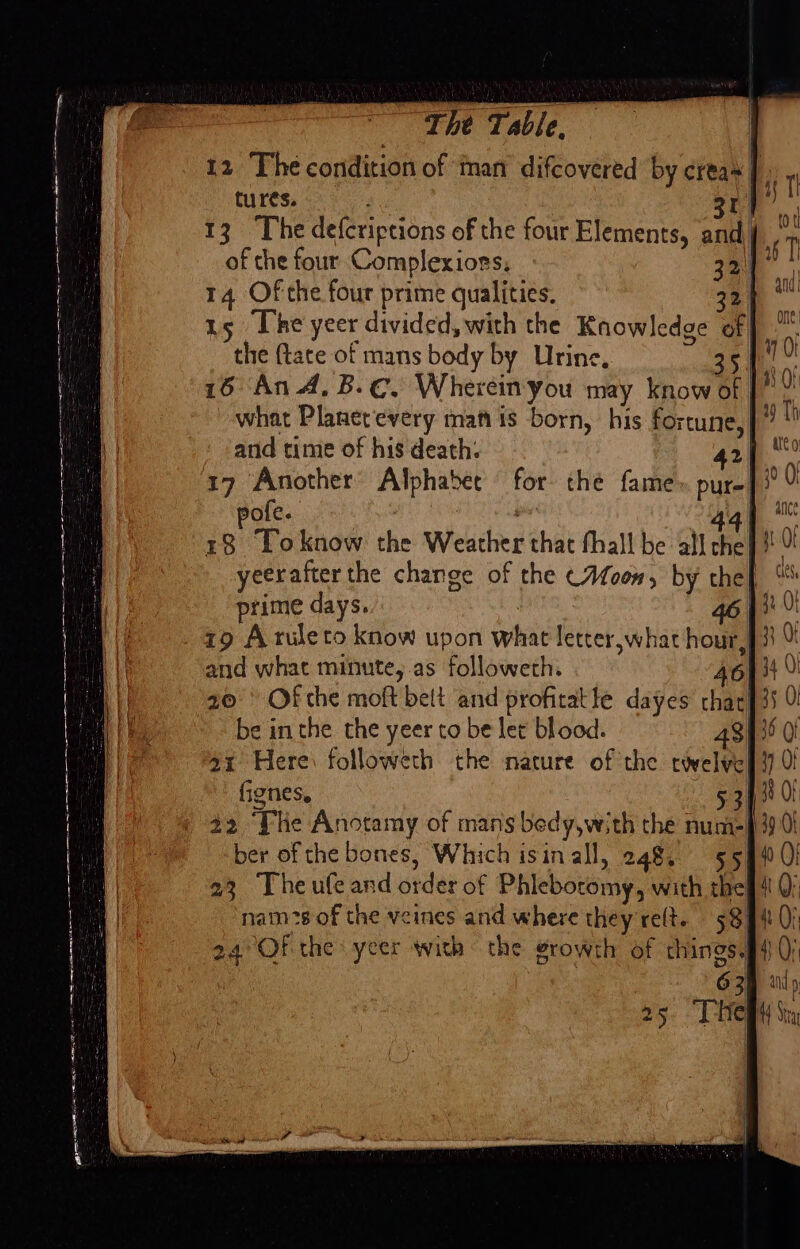 The Table.
12 The condition of man diſcovered by crea-
tures. 31
13 The deſcriptions of the four Elements, and
of the four Complexions. 32
14 Of the four prime qualities. 32
15 The yeer divided, with the Knowledge of
the ſtate of mans body by Urine. 35
16 An A. B. C. Wherein you may know of
what Planet every man is born, his fortune,
and time of his death. 42
17 Another Alphabet for the ſame pur-
poſe. 44
18 To know the Weather that ſhall be all the
yeer after the change of the Moon, by the
prime days. 46
19 A rule to know upon what letter, what hour,
and what minute, as followeth. 46
20 Of the moſt beſt and profitable dayes that
be in the the yeer to be let blood. 48
21 Here followeth the nature of the twelve
ſignes. 53
22 The Anotamy of mans body, with the num-
ber of the bones, Which is in all, 248. 55
23 The uſe and order of Phlebotomy, with the
names of the veines and where they reſt. 58
24 Of the yeer with the growth of things.
63
25 The